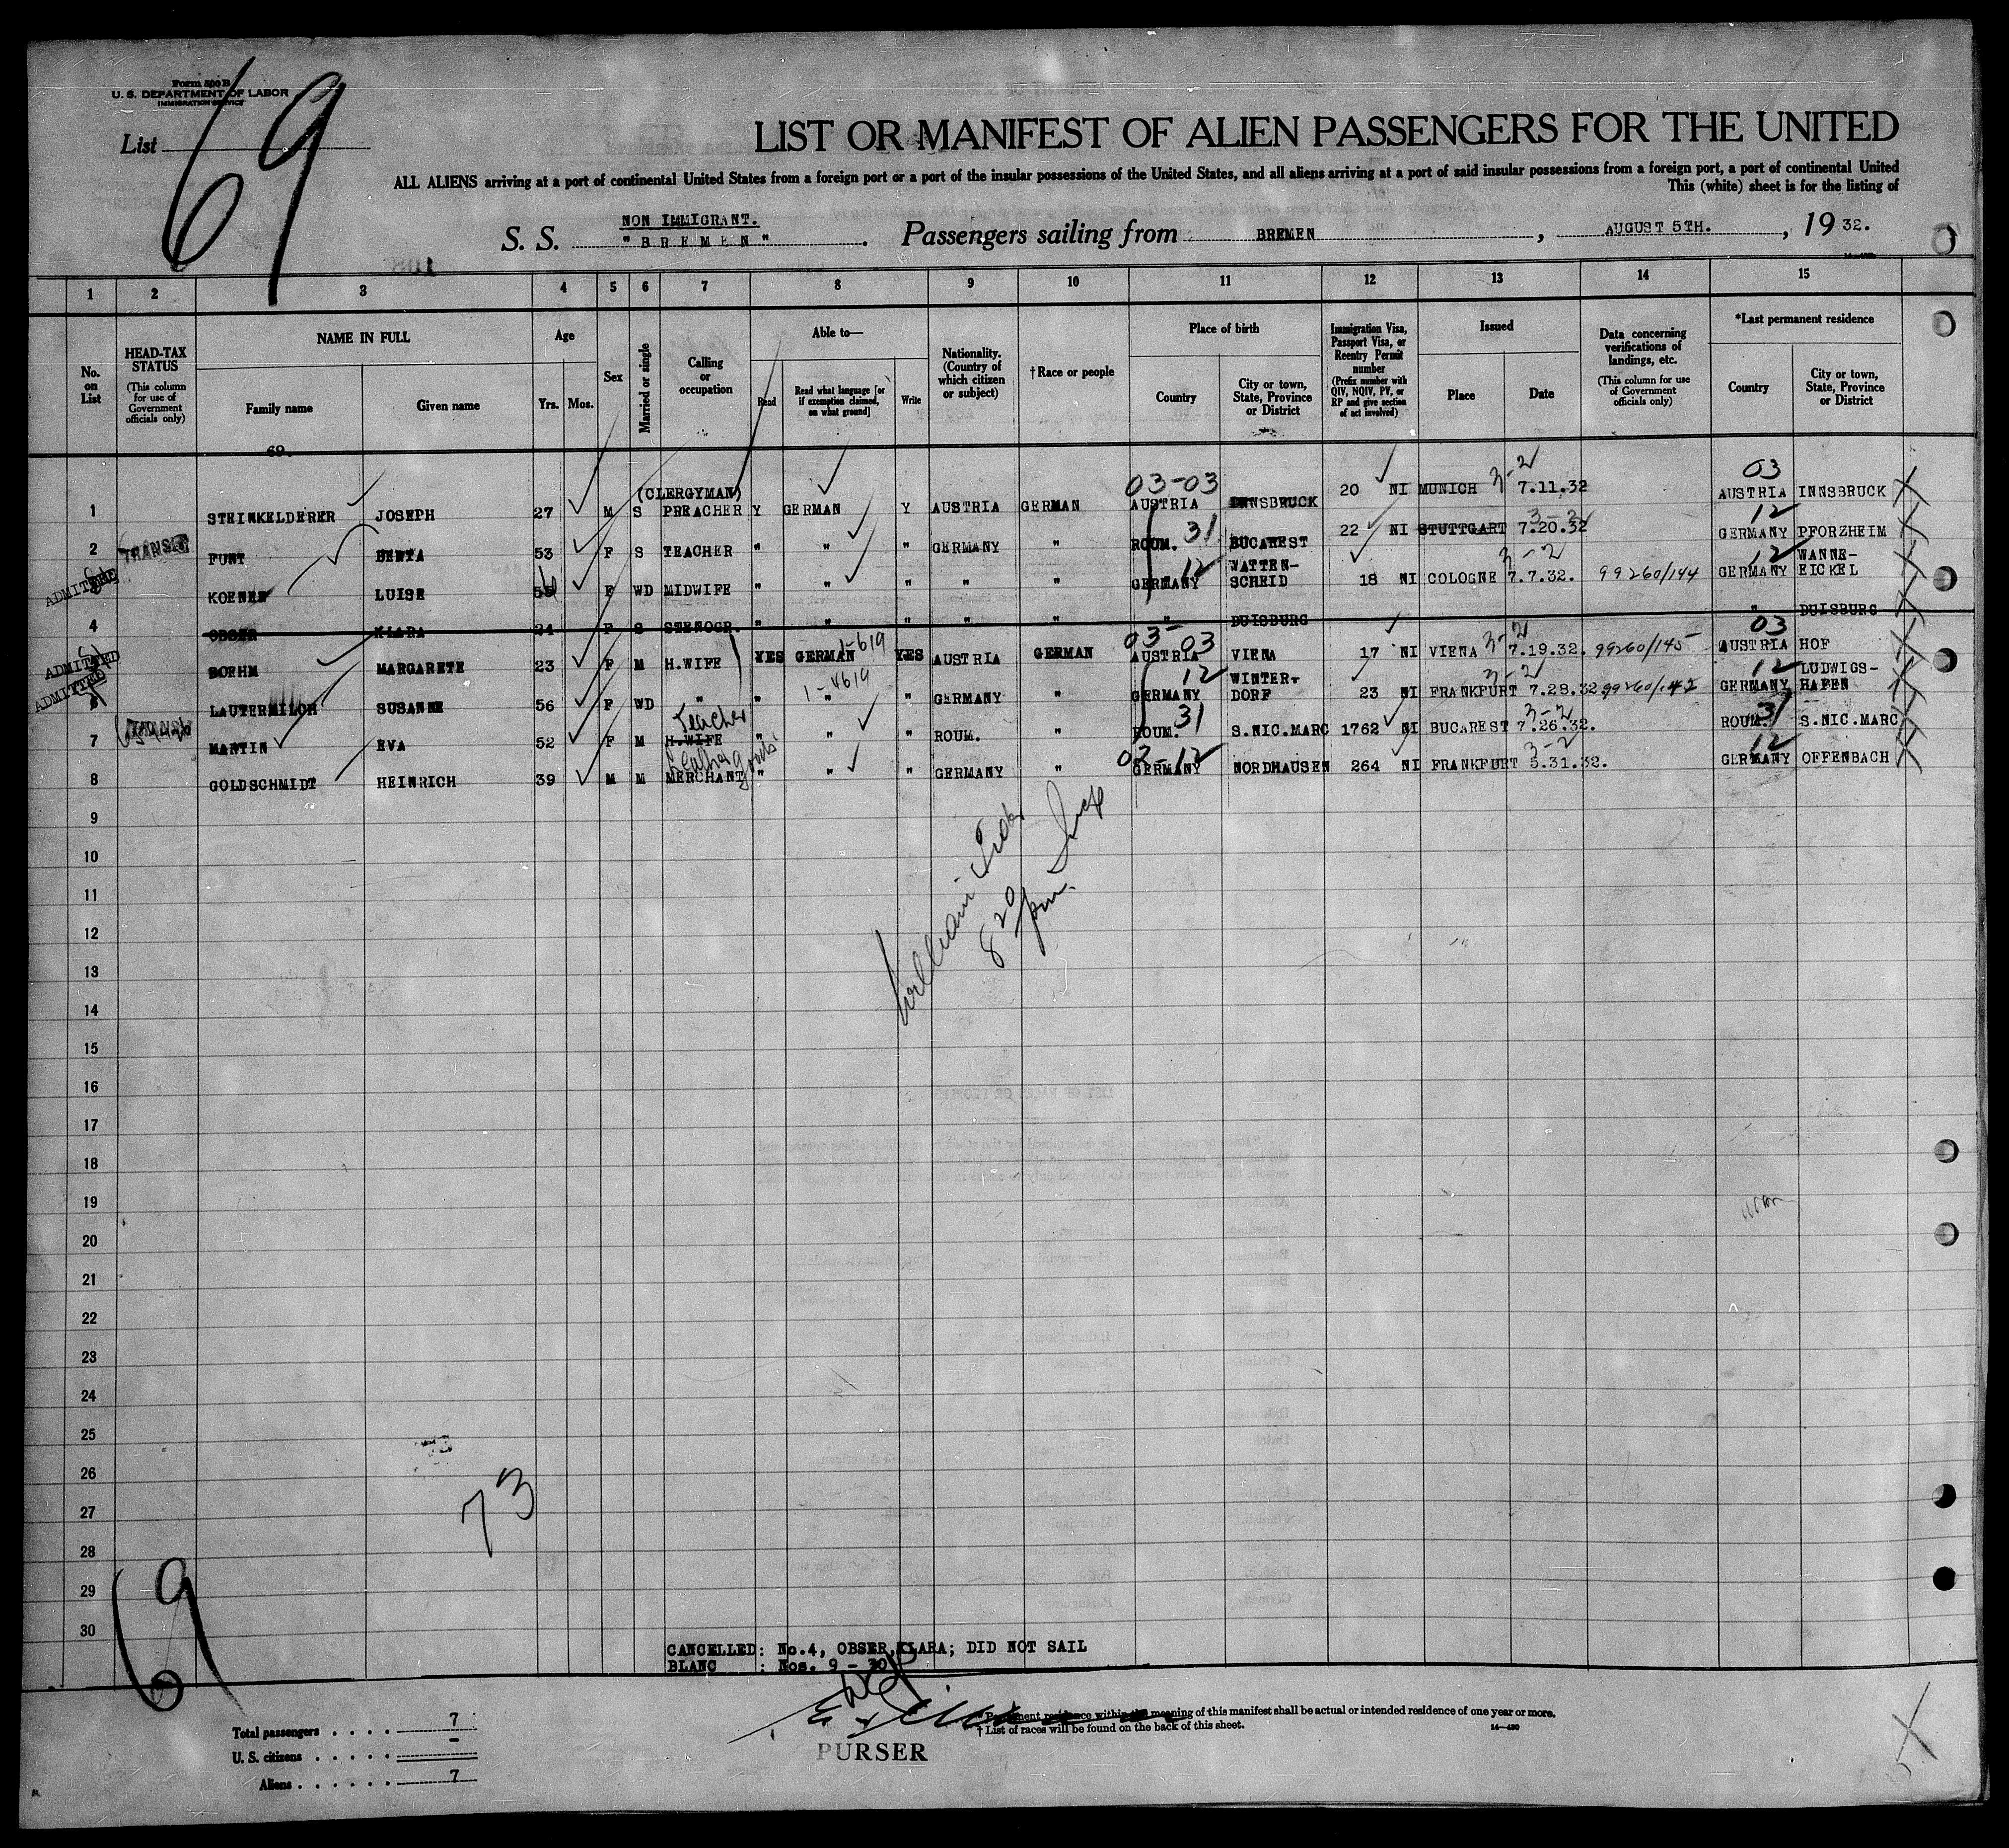 Form 500 B
U. S. DEPARTMENT OF LABOR
IMMIGRATION SERVICE
List 69
LIST OR MANIFEST OF ALIEN PASSENGERS FOR THE UNITED
ALL ALIENS arriving at a port of continental United States from a foreign port or a port of the insular possessions of the United States, and all aliens arriving at a port of said insular possessions from a foreign port, a port of continental United
This (white) sheet is for the listing of
NON IMMIGRANT.
S. S. "BREMEN". Passengers sailing from BREMEN, AUGUST 5TH., 1932.
1 2 3 4 5 6 7 8 9 10 11 12 13 14 15
No. on List
HEAD-TAX STATUS (This column for use of Government officials only)
NAME IN FULL
Family name
Given name
Age
Yrs. Mos.
Sex
Married or single
Calling or occupation
Able to—
Read
Read what language [or if exemption claimed, on what ground]
Write
Nationality. (Country of which citizen or subject)
†Race or people
Place of birth
Country
City or town, State, Province or District
Immigration Visa, Passport Visa, or Reentry Permit number (Prefix number with QIV, NQIV, PV, or RP and give section of act involved)
Issued
Place
Date
Data concerning verifications of landings, etc. (This column for use of Government officials only)
*Last permanent residence
Country
City or town, State, Province or District
69.
03-03 3-2 03
1 STEINKELDERER JOSEPH 27 M S (CLERGYMAN) PREACHER Y GERMAN Y AUSTRIA GERMAN AUSTRIA INNSBRUCK 20 NI MUNICH 7.11.32 AUSTRIA INNSBRUCK
31 3-2 12
2 TRANSIT FUNT BERTA 53 F S TEACHER " " " GERMANY " ROUM. BUCAREST 22 NI STUTTGART 7.20.32 GERMANY PFORZHEIM
12 3-2 12
ADMITTED KOENEN LUISE F WD MIDWIFE " " " " " GERMANY WATTEN-SCHEID 18 NI COLOGNE 7.7.32. 99260/144 GERMANY WANNE-EICKEL
4 OBSER KLARA 24 F S STENOGR. " " " " " " DUISBURG " DUISBURG
03-03 3-2 03
ADMITTED BOEHM MARGARETE 23 F M H.WIFE YES GERMAN YES AUSTRIA GERMAN AUSTRIA VIENA 17 NI VIENA 7.19.32. 99260/145 AUSTRIA HOF
12 3-2 12
ADMITTED LAUTERMILCH SUSANNE 56 F WD " " " " GERMANY " GERMANY WINTER-DORF 23 NI FRANKFURT 7.28.32 GERMANY LUDWIGS-HAFEN
Teacher 31 3-2 31
7 MARTIN EVA 52 F M H.WIFE " " " ROUM. " ROUM. S.NIC.MARC 1762 NI BUCAREST 7.26.32. ROUM. S.NIC.MARC
Leather goods 3-2 12
8 GOLDSCHMIDT HEINRICH 39 M M MERCHANT " " " GERMANY " GERMANY NORDHAUSEN 264 NI FRANKFURT 5.31.32. GERMANY OFFENBACH
9
10
11
12
William
8 20 pm.
13
14
15
16
17
18
19
20
21
22
23
24
25
26
27
28
29
30
73
69
CANCELLED: No.4, OBSER, KLARA; DID NOT SAIL
BLANC : Nos. 9 - 30
Total passengers . . . . 7
U. S. citizens . . . . . -
Aliens . . . . . . 7
PURSER
* Permanent residence within the meaning of this manifest shall be actual or intended residence of one year or more.
† List of races will be found on the back of this sheet.
14—430